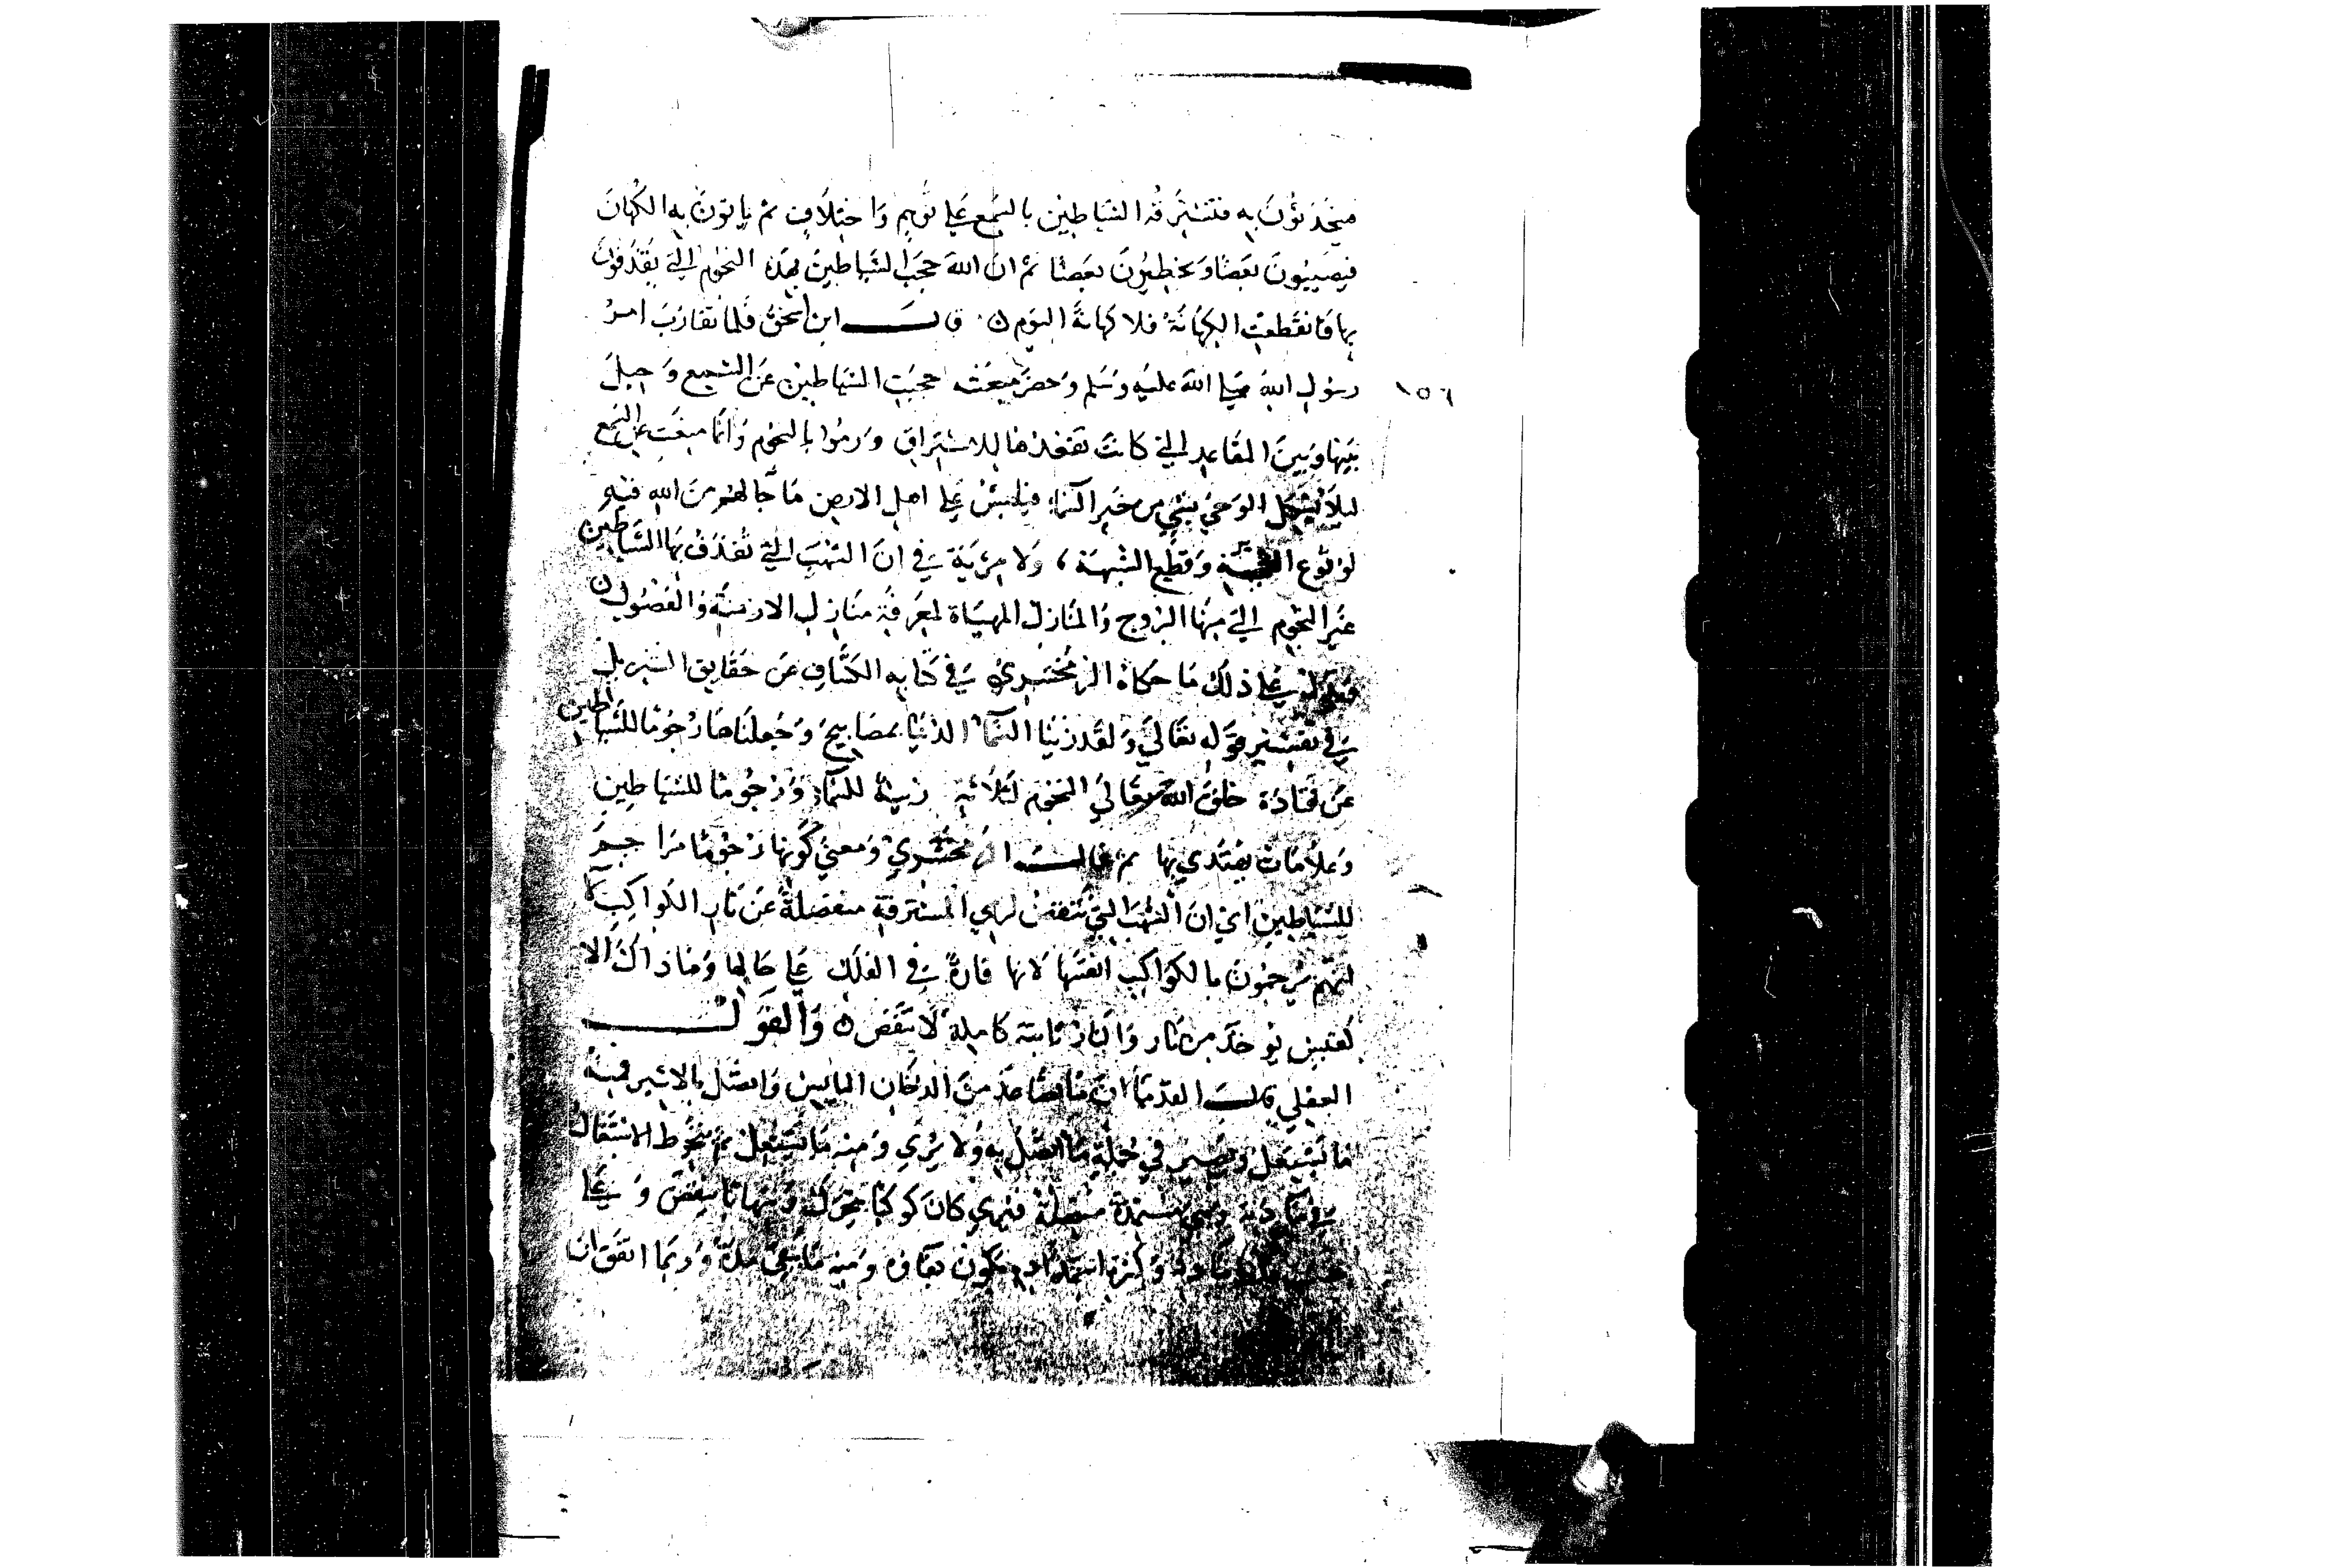 فيتحدثون به فتسترقه الشياطين بالسمع على توهم واختلاف ثم ياتون به الكهان
فيصيبون بعضا ويخطيون بعضا ثم ان الله حجب الشياطين بهذه النجوم التي يقذفون
بها فانقطعت الكهانة فلا كهانة اليوم قال ابن اسحق فلما تقارب امر
رسول الله صلى الله عليه وسلم وحضر مبعثه حجبت الشياطين عن السمع وحيل
١٥٦
بينها وبين المقاعد التي كانت تقعد فيها للاستراق ورموا بالنجوم وانما منعت من السمع
ليلا يشكل الوحي بشي من خبر السماء فيلبس على اهل الارض ما جاهم من الله فيه
لوقوع الحجة وقطع الشبهة ولا مرية في ان الشهب التي تقذف بها الشياطين
غير النجوم التي منها البروج والمنازل المهياة لمعرفة منازل الازمنة والفصول
على ذلك ما حكاه الزمخشري في كتابه الكشاف عن حقايق التنزيل
في تفسير قوله تعالى ولقد زينا السماء الدنيا بمصابيح وجعلناها رجوما للشياطين
عن قتادة خلق الله تعالى النجوم لثلاثة زينة للسماء ورجوما للشياطين
وعلامات يهتدي بها ثم قال الزمخشري ومعنى كونها رجوما مراجم
للشياطين اي ان الشهب التي تنقض لرمي المسترقة منفصلة عن نار الكواكب لا
انهم يرجمون بالكواكب انفسها لانها قارة في الفلك على حالها وما ذاك الا
كقبس يوخذ من نار والنار ثابتة كاملة لا تنقص والقول
العقلي قالت القدما ان ما تصاعد من الدخان اليابس واتصل بالاثير فمنه
ما يشتعل ويصير في جملة ما اتصل به ولا يرى ومنه ما يشتعل ثم الاشتعال
في مادته وهي مستمدة متصلة فيرى كان كوكبا تحرك وشهابا ينقض وعلى
مادته وكثرة استمداده يكون بقاوه ومنه ما يبقى مدة وربما اتفق ان